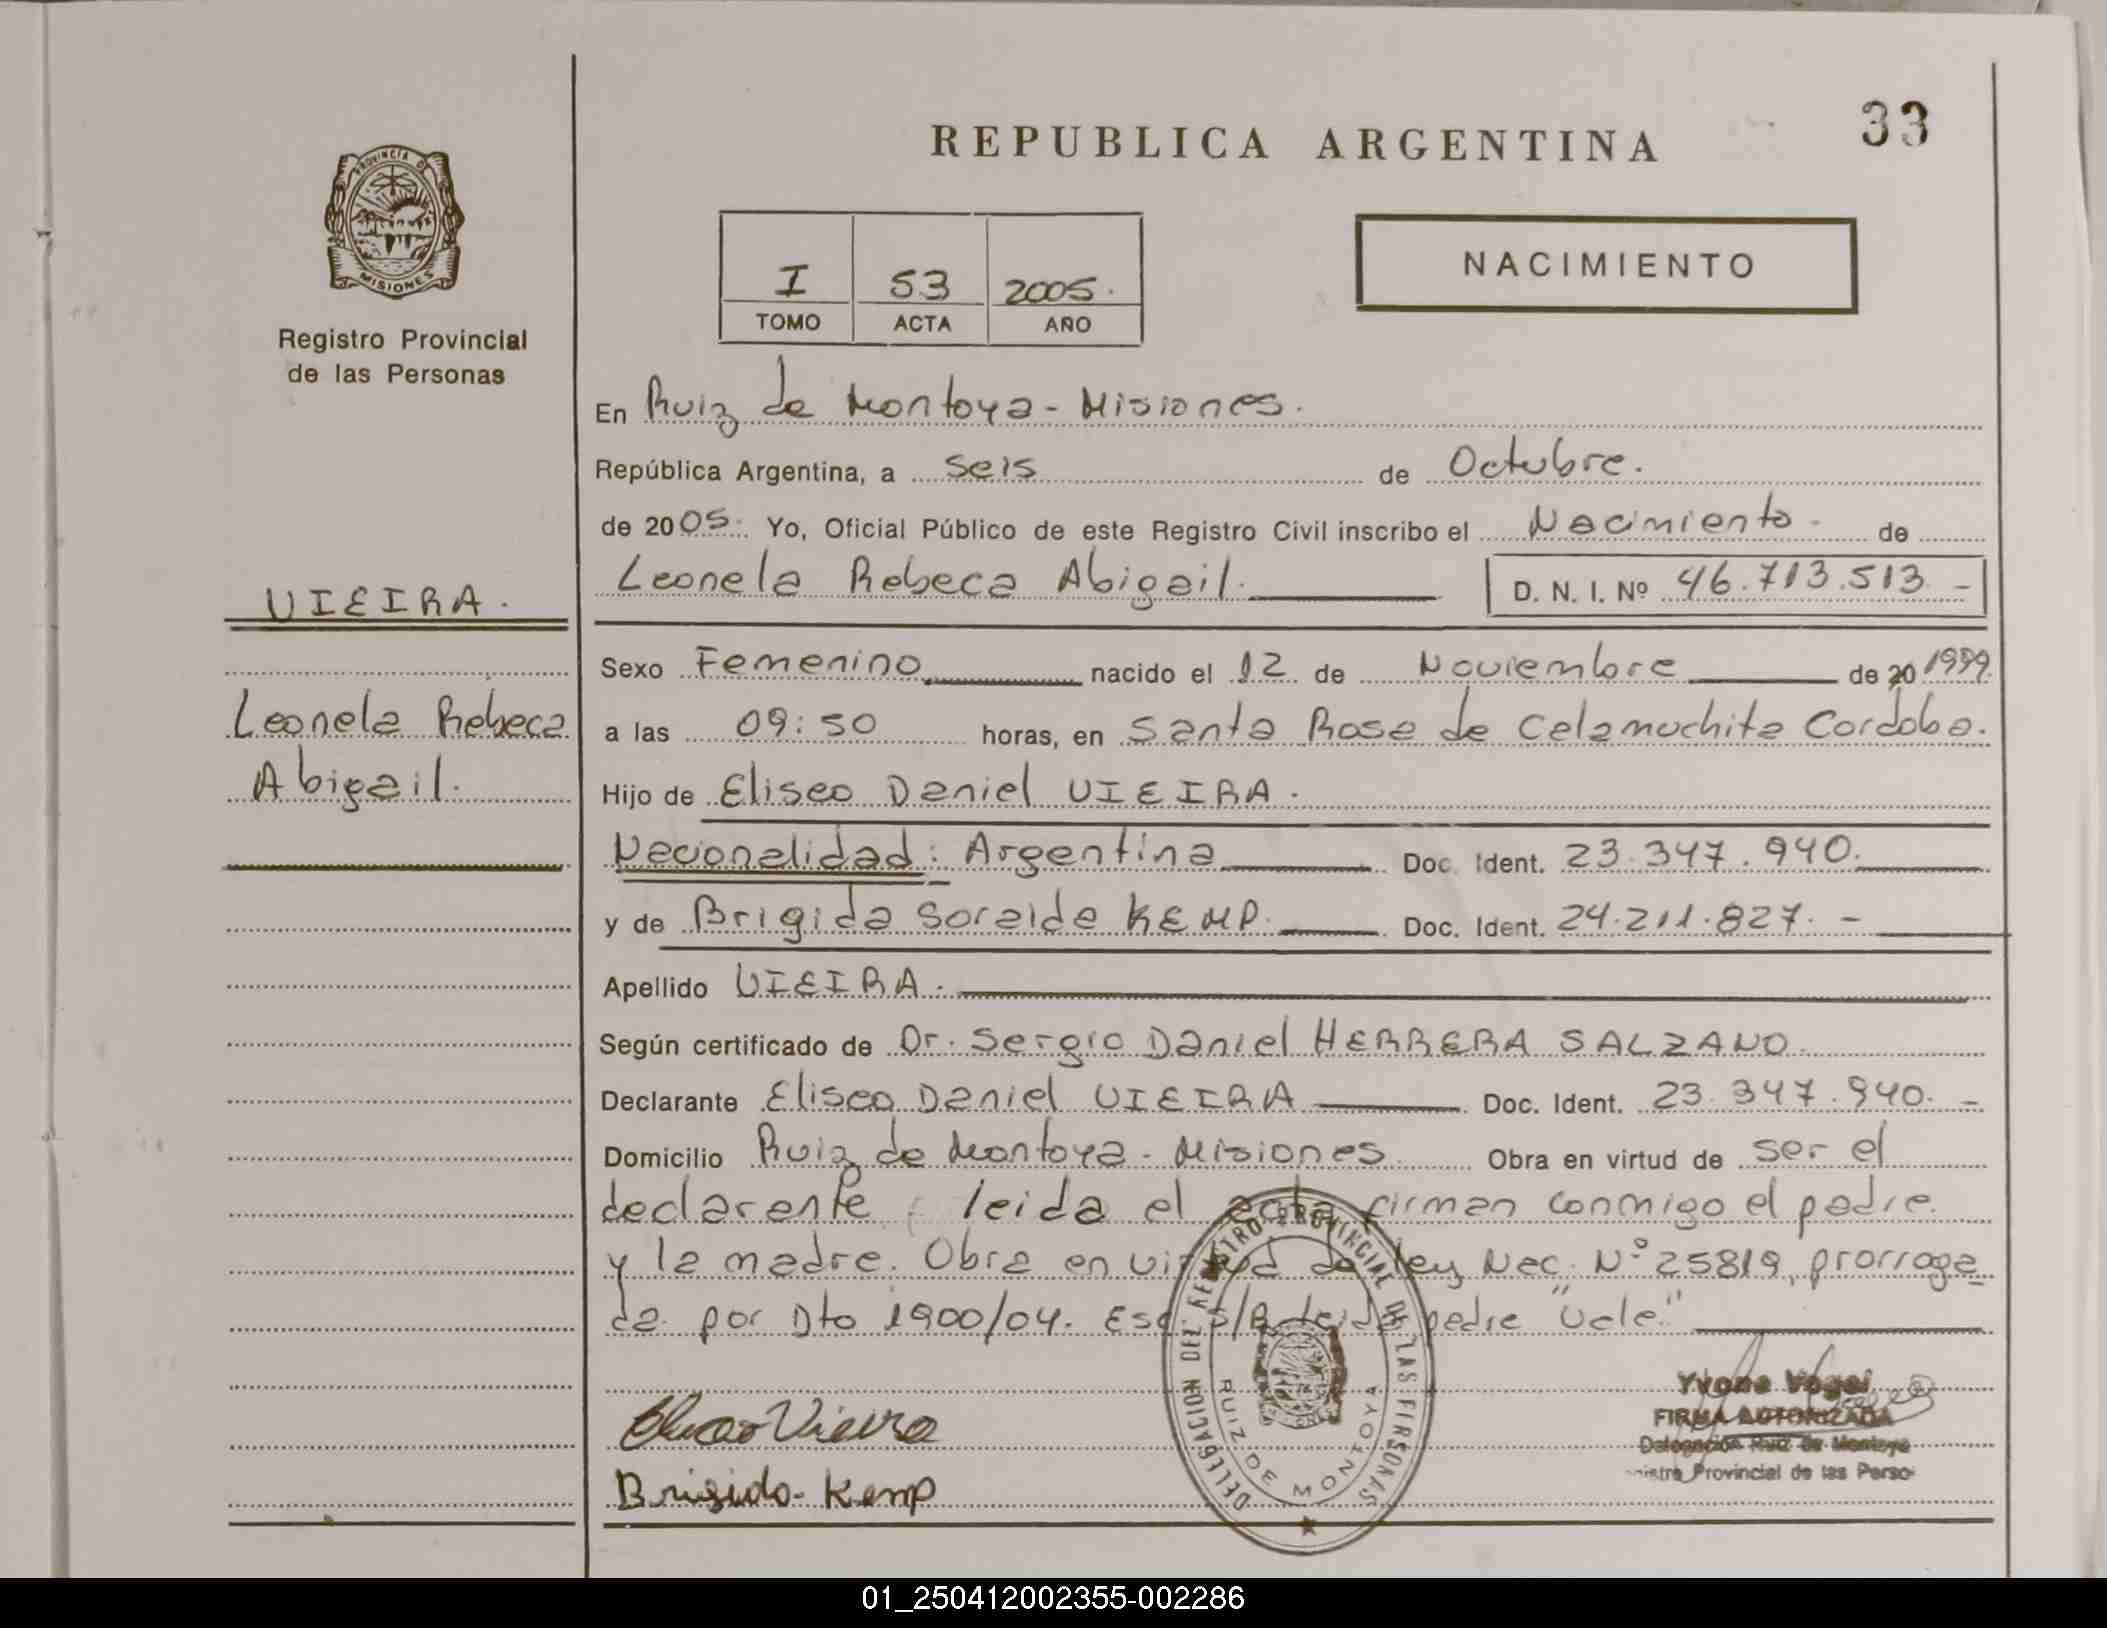 33
REPUBLICA ARGENTINA
PROVINCIA DE
MISIONES
Registro Provincial
de las Personas
I 53 2005.
TOMO ACTA AÑO
NACIMIENTO
En Ruiz de Montoya - Misiones.
República Argentina, a seis de Octubre.
de 2005. Yo, Oficial Público de este Registro Civil inscribo el Nacimiento. de
Leonela Rebeca Abigail. D. N. I. Nº 46.713.513 -
VIEIRA.
Leonela Rebeca
Abigail.
Sexo Femenino nacido el 12 de Noviembre de 20 1999.
a las 09:50 horas, en Santa Rosa de Calamuchita Cordoba.
Hijo de Eliseo Daniel VIEIRA.
Nacionalidad: Argentina Doc. Ident. 23.347.940.
y de Brigida Soraide KEMP. Doc. Ident. 24.211.827. -
Apellido VIEIRA.
Según certificado de Dr. Sergio Daniel HERRERA SALZANO.
Declarante Eliseo Daniel VIEIRA Doc. Ident. 23.347.940. -
Domicilio Ruiz de Montoya - Misiones. Obra en virtud de ser el
declarante, leida el acta firman conmigo el padre
y la madre. Obra en virtud de ley Nac. Nº 25819, prorroga
da por Dto 1900/04. padre "Vale"
Eliseo Vieira
Brigida Kemp
DELEGACION DEL REGISTRO PROVINCIAL DE LAS PERSONAS
RUIZ DE MONTOYA
Yvone Vogel
FIRMA AUTORIZADA
Delegación Ruiz de Montoya
Provincial de las Perso
01_250412002355-002286